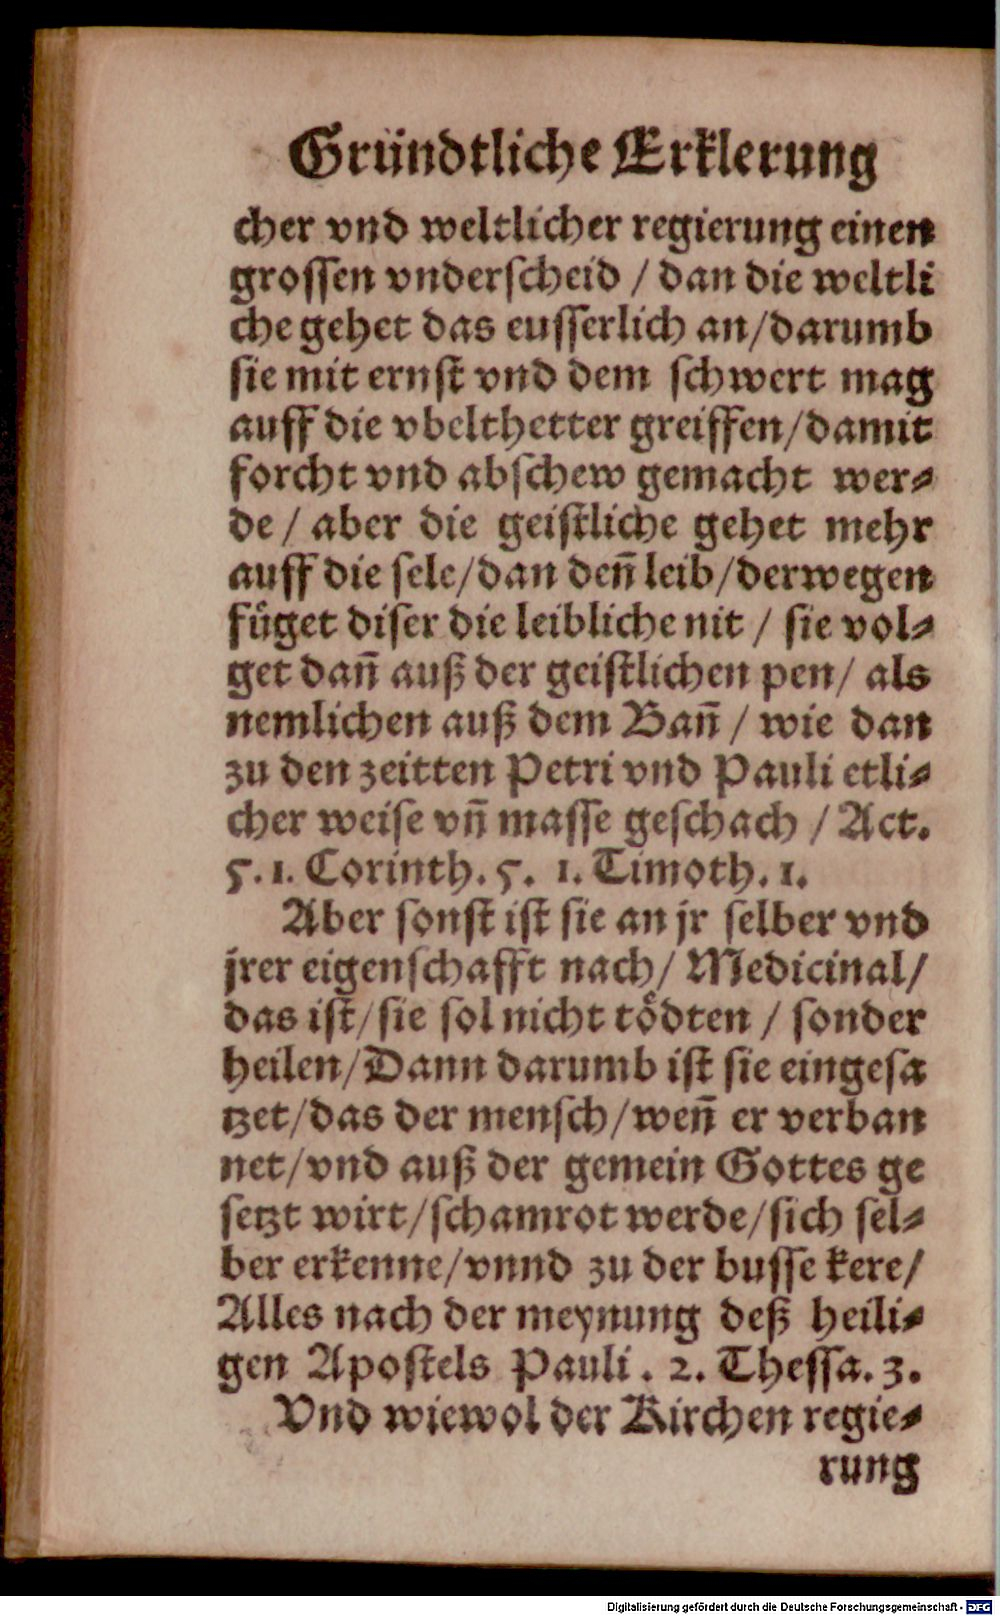 Gründtliche Erklerung
cher vnd weltlicher regierung einen
grossen vnderscheid / dan die weltli
che gehet das eusserlich an/darumb
sie mit ernst vnd dem schwert mag
auff die vbelthetter greiffen/damit
forcht vnd abschew gemacht wer⸗
de / aber die geistliche gehet mehr
auff die sele/dan deñ leib/derwegen
fuͤget diser die leibliche nit / sie vol⸗
get dañ auß der geistlichen pen/ als
nemlichen auß dem Bañ / wie dan
zu den zeitten Petri vnd Pauli etli⸗
cher weise vñ masse geschach / Act.
5. 1. Corinth. 5. 1. Timoth. 1.
Aber sonst ist sie an jr selber vnd
jrer eigenschafft nach/ Medicinal/
das ist/sie sol nicht toͤdten / sonder
heilen/Dann darumb ist sie eingesa
tzet/das der mensch/weñ er verban
net/vnd auß der gemein Gottes ge
setzt wirt/schamrot werde/sich sel⸗
ber erkenne/vnnd zu der busse kere/
Alles nach der meynung deß heili⸗
gen Apostels Pauli. 2. Thessa. 3.
Vnd wiewol der Kirchen regie⸗
rung
Digitalisierung gefördert durch die Deutsche Forschungsgemeinschaft - DFG